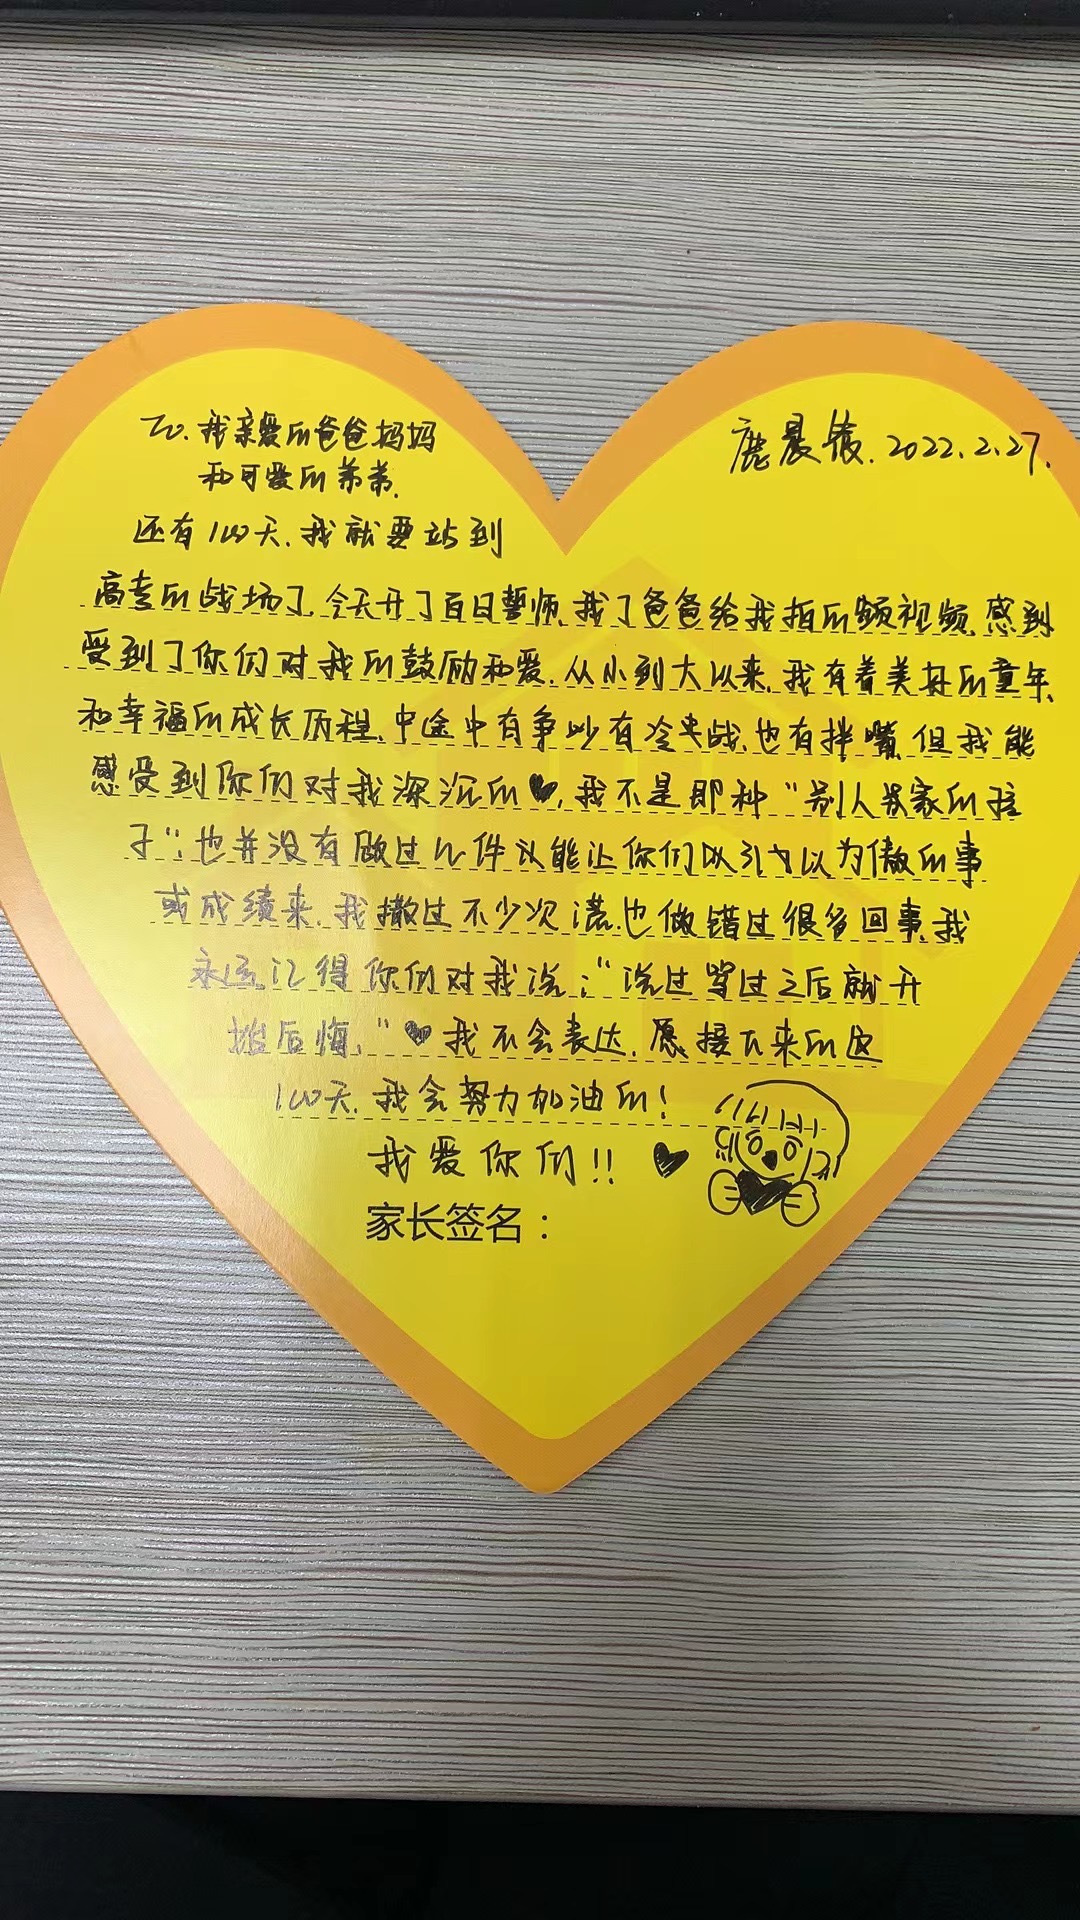 To. 我亲爱的爸爸妈妈
和可爱的弟弟.
鹿晨 2022.2.27.
还有100天.我就要站到
高考的战场了.今天开了百日誓师.我了爸爸给我拍的频视频.感到
受到了你们对我的鼓励和爱.从小到大以来.我有着美好的童年
和幸福的成长历程.中途中有争吵有冷战.也有拌嘴.但我能
感受到你们对我深沉的♥.我不是那种“别人家的孩
子”.也并没有做过几件能让你们以引为以为傲的事
或成绩来.我撒过不少次谎.也做错过很多回事.我
永远记得你们对我说:“说过骂过之后就开
始后悔.”♥我不会表达.愿接下来的这
100天.我会努力加油的!
我爱你们!! ♥
家长签名：